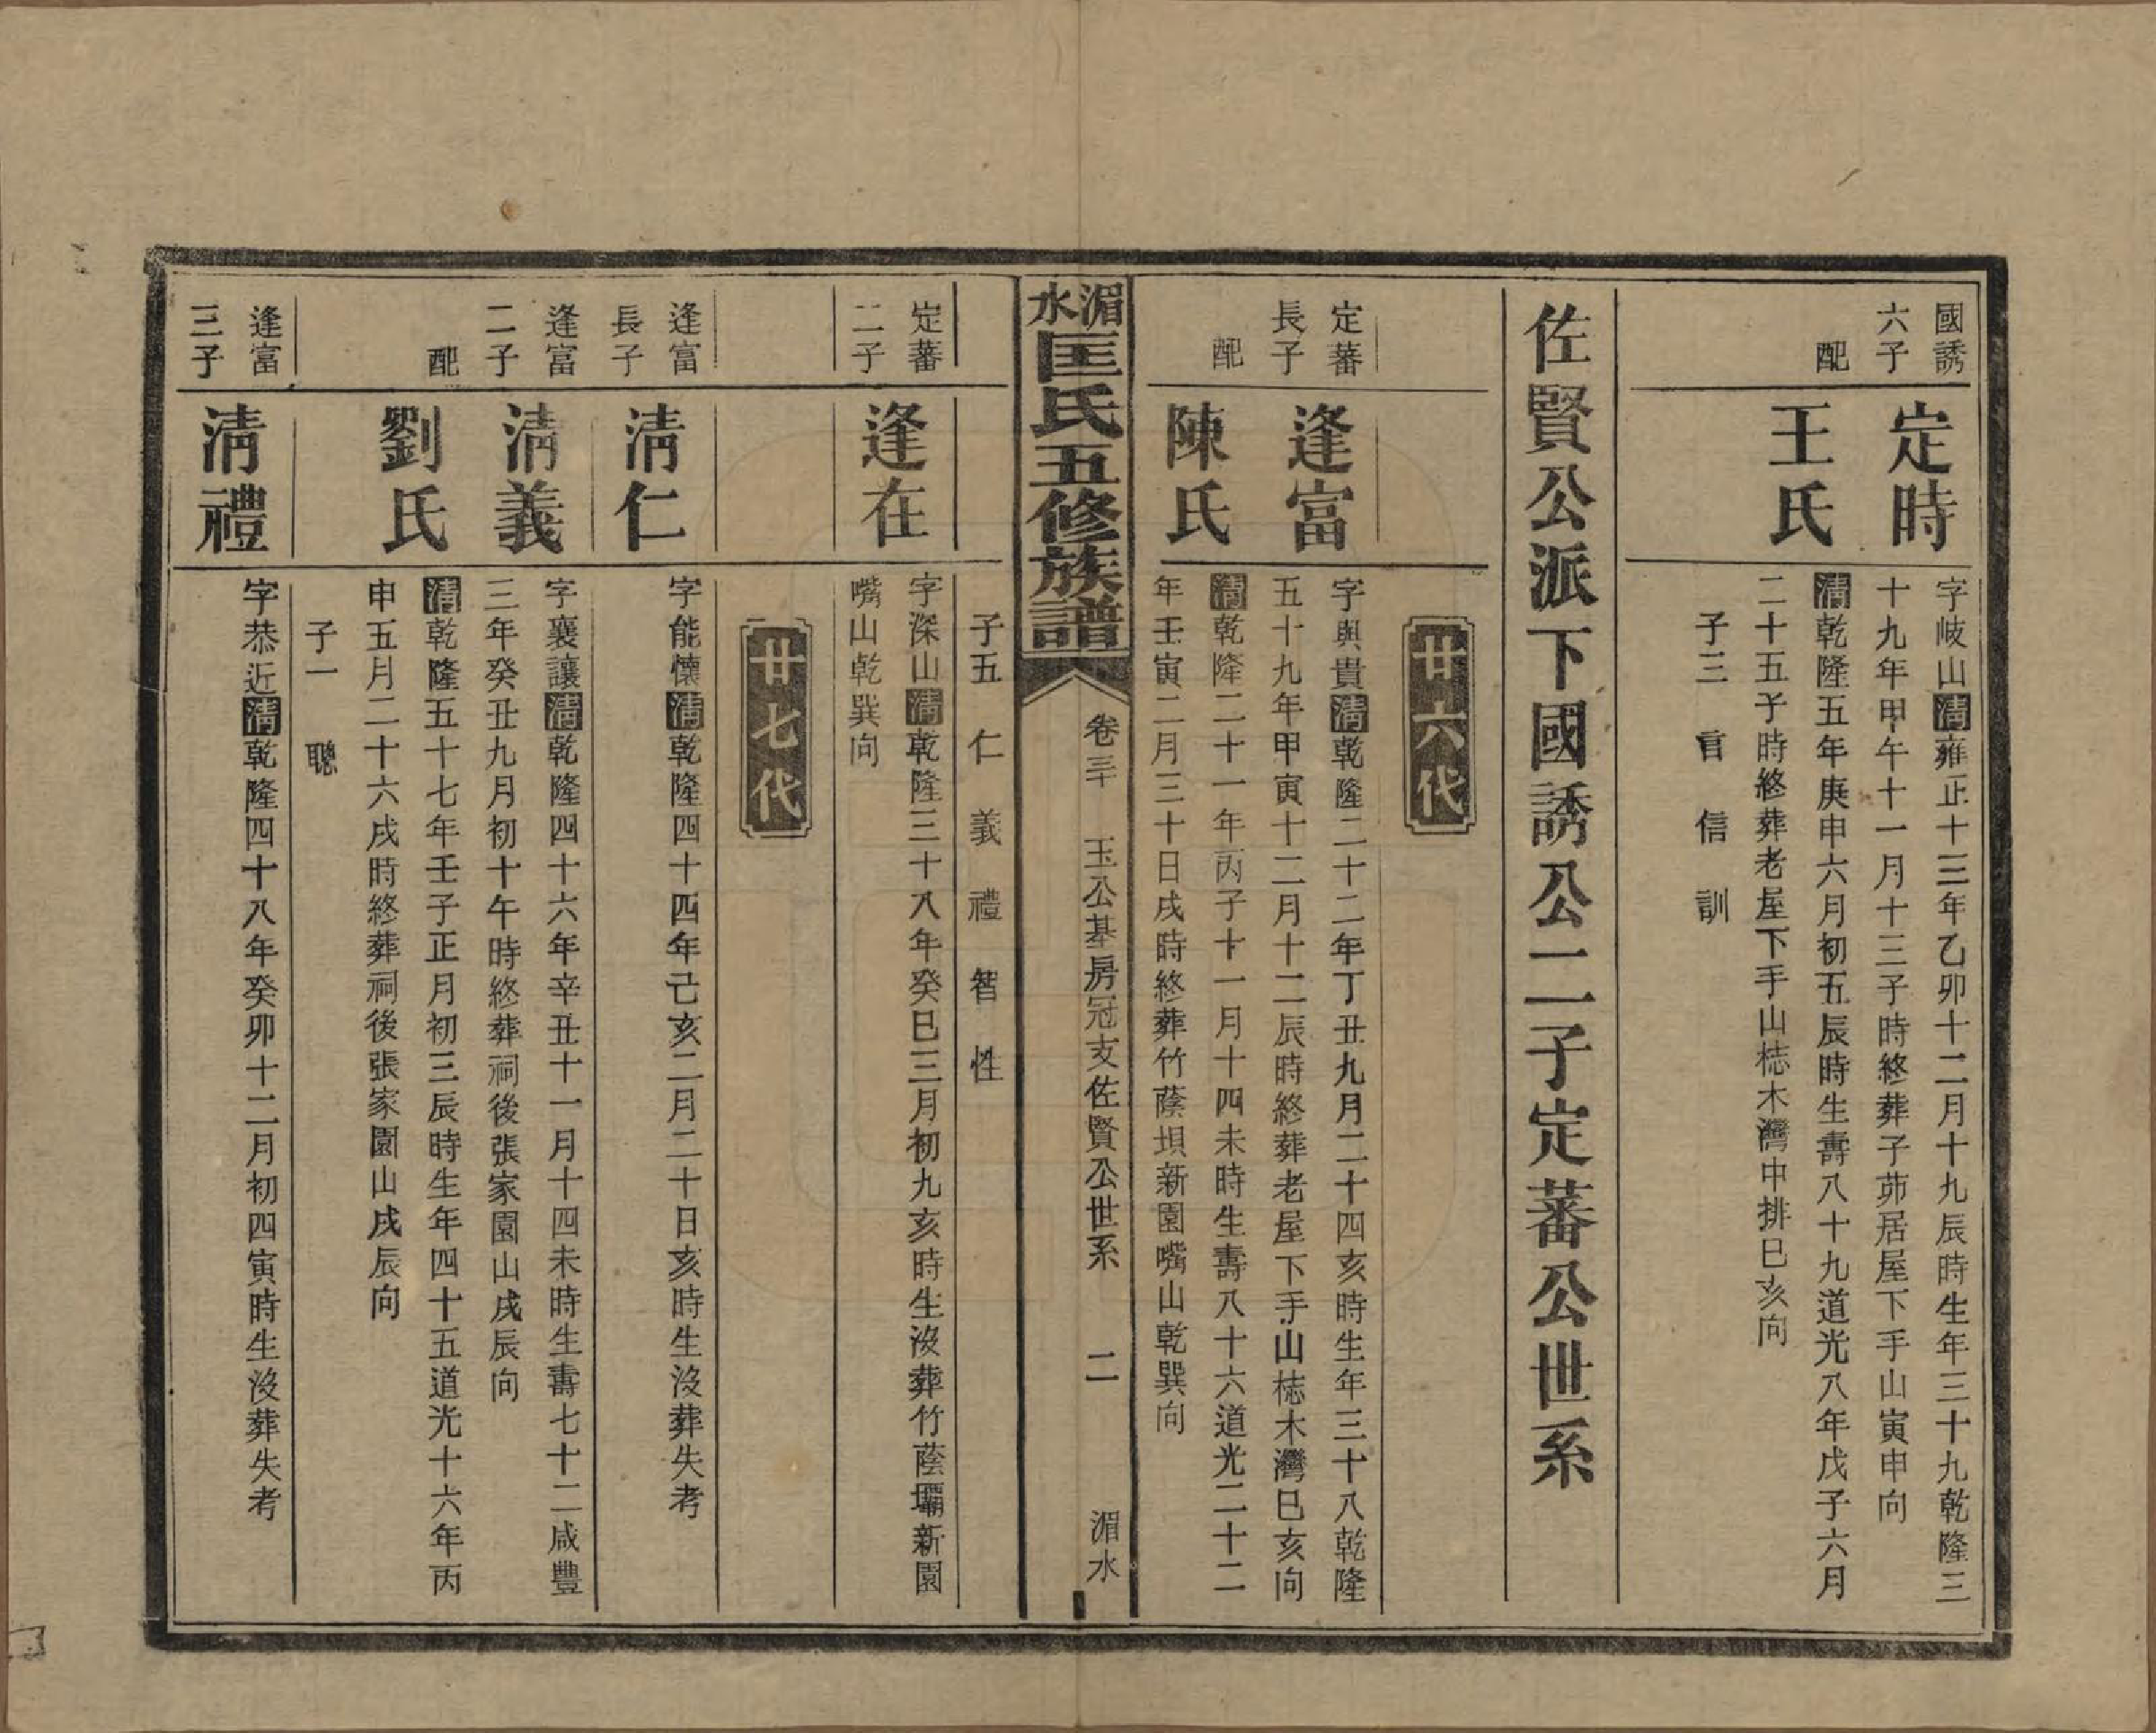 國誘
六子
定時
字岐山清雍正十三年乙卯十二月十九辰時生年三十九乾隆三
十九年甲午十一月十三子時終葬子茆居屋下手山寅申向
配
王氏
清乾隆五年庚申六月初五辰時生壽八十九道光八年戊子六月
二十五子時終葬老屋下手山梽木灣中排巳亥向
子三 言 信 訓
佐賢公派下國誘公二子定蕃公世系
廿六代
定蕃
長子
逢富
字與貴清乾隆二十二年丁丑九月二十四亥時生年三十八乾隆
五十九年甲寅十二月十二辰時終葬老屋下手山梽木灣巳亥向
配
陳氏
清乾隆二十一年丙子十一月十四未時生壽八十六道光二十二
年壬寅二月三十日戌時終葬竹蔭垻新園嘴山乾巽向
湄水匡氏五修族譜
卷三 玉公基房冠支佐賢公世系 二 湄水
子五 仁 義 禮 智 性
定蕃
二子
逢在
字深山清乾隆三十八年癸巳三月初九亥時生沒葬竹蔭壩新園
嘴山乾巽向
廿七代
逢富
長子
清仁
字能懷清乾隆四十四年己亥二月二十日亥時生沒葬失考
逢富
二子
清義
字襄讓清乾隆四十六年辛丑十一月十四未時生壽七十二咸豐
三年癸丑九月初十午時終葬祠後張家園山戌辰向
配
劉氏
清乾隆五十七年壬子正月初三辰時生年四十五道光十六年丙
申五月二十六戌時終葬祠後張家園山戌辰向
子一 聰
逢富
三子
清禮
字恭近清乾隆四十八年癸卯十二月初四寅時生沒葬失考